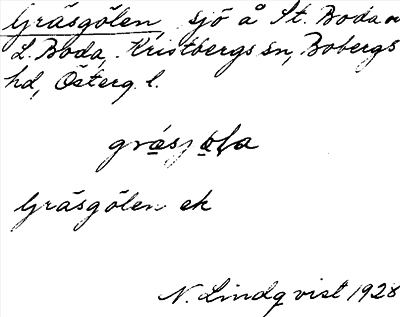 Gräsgölen, sjö å St. Boda o
L. Boda, Kristbergs sn, Bobergs
hd, Österg. l.
Gräsgölen ek
N. Lindqvist 1928